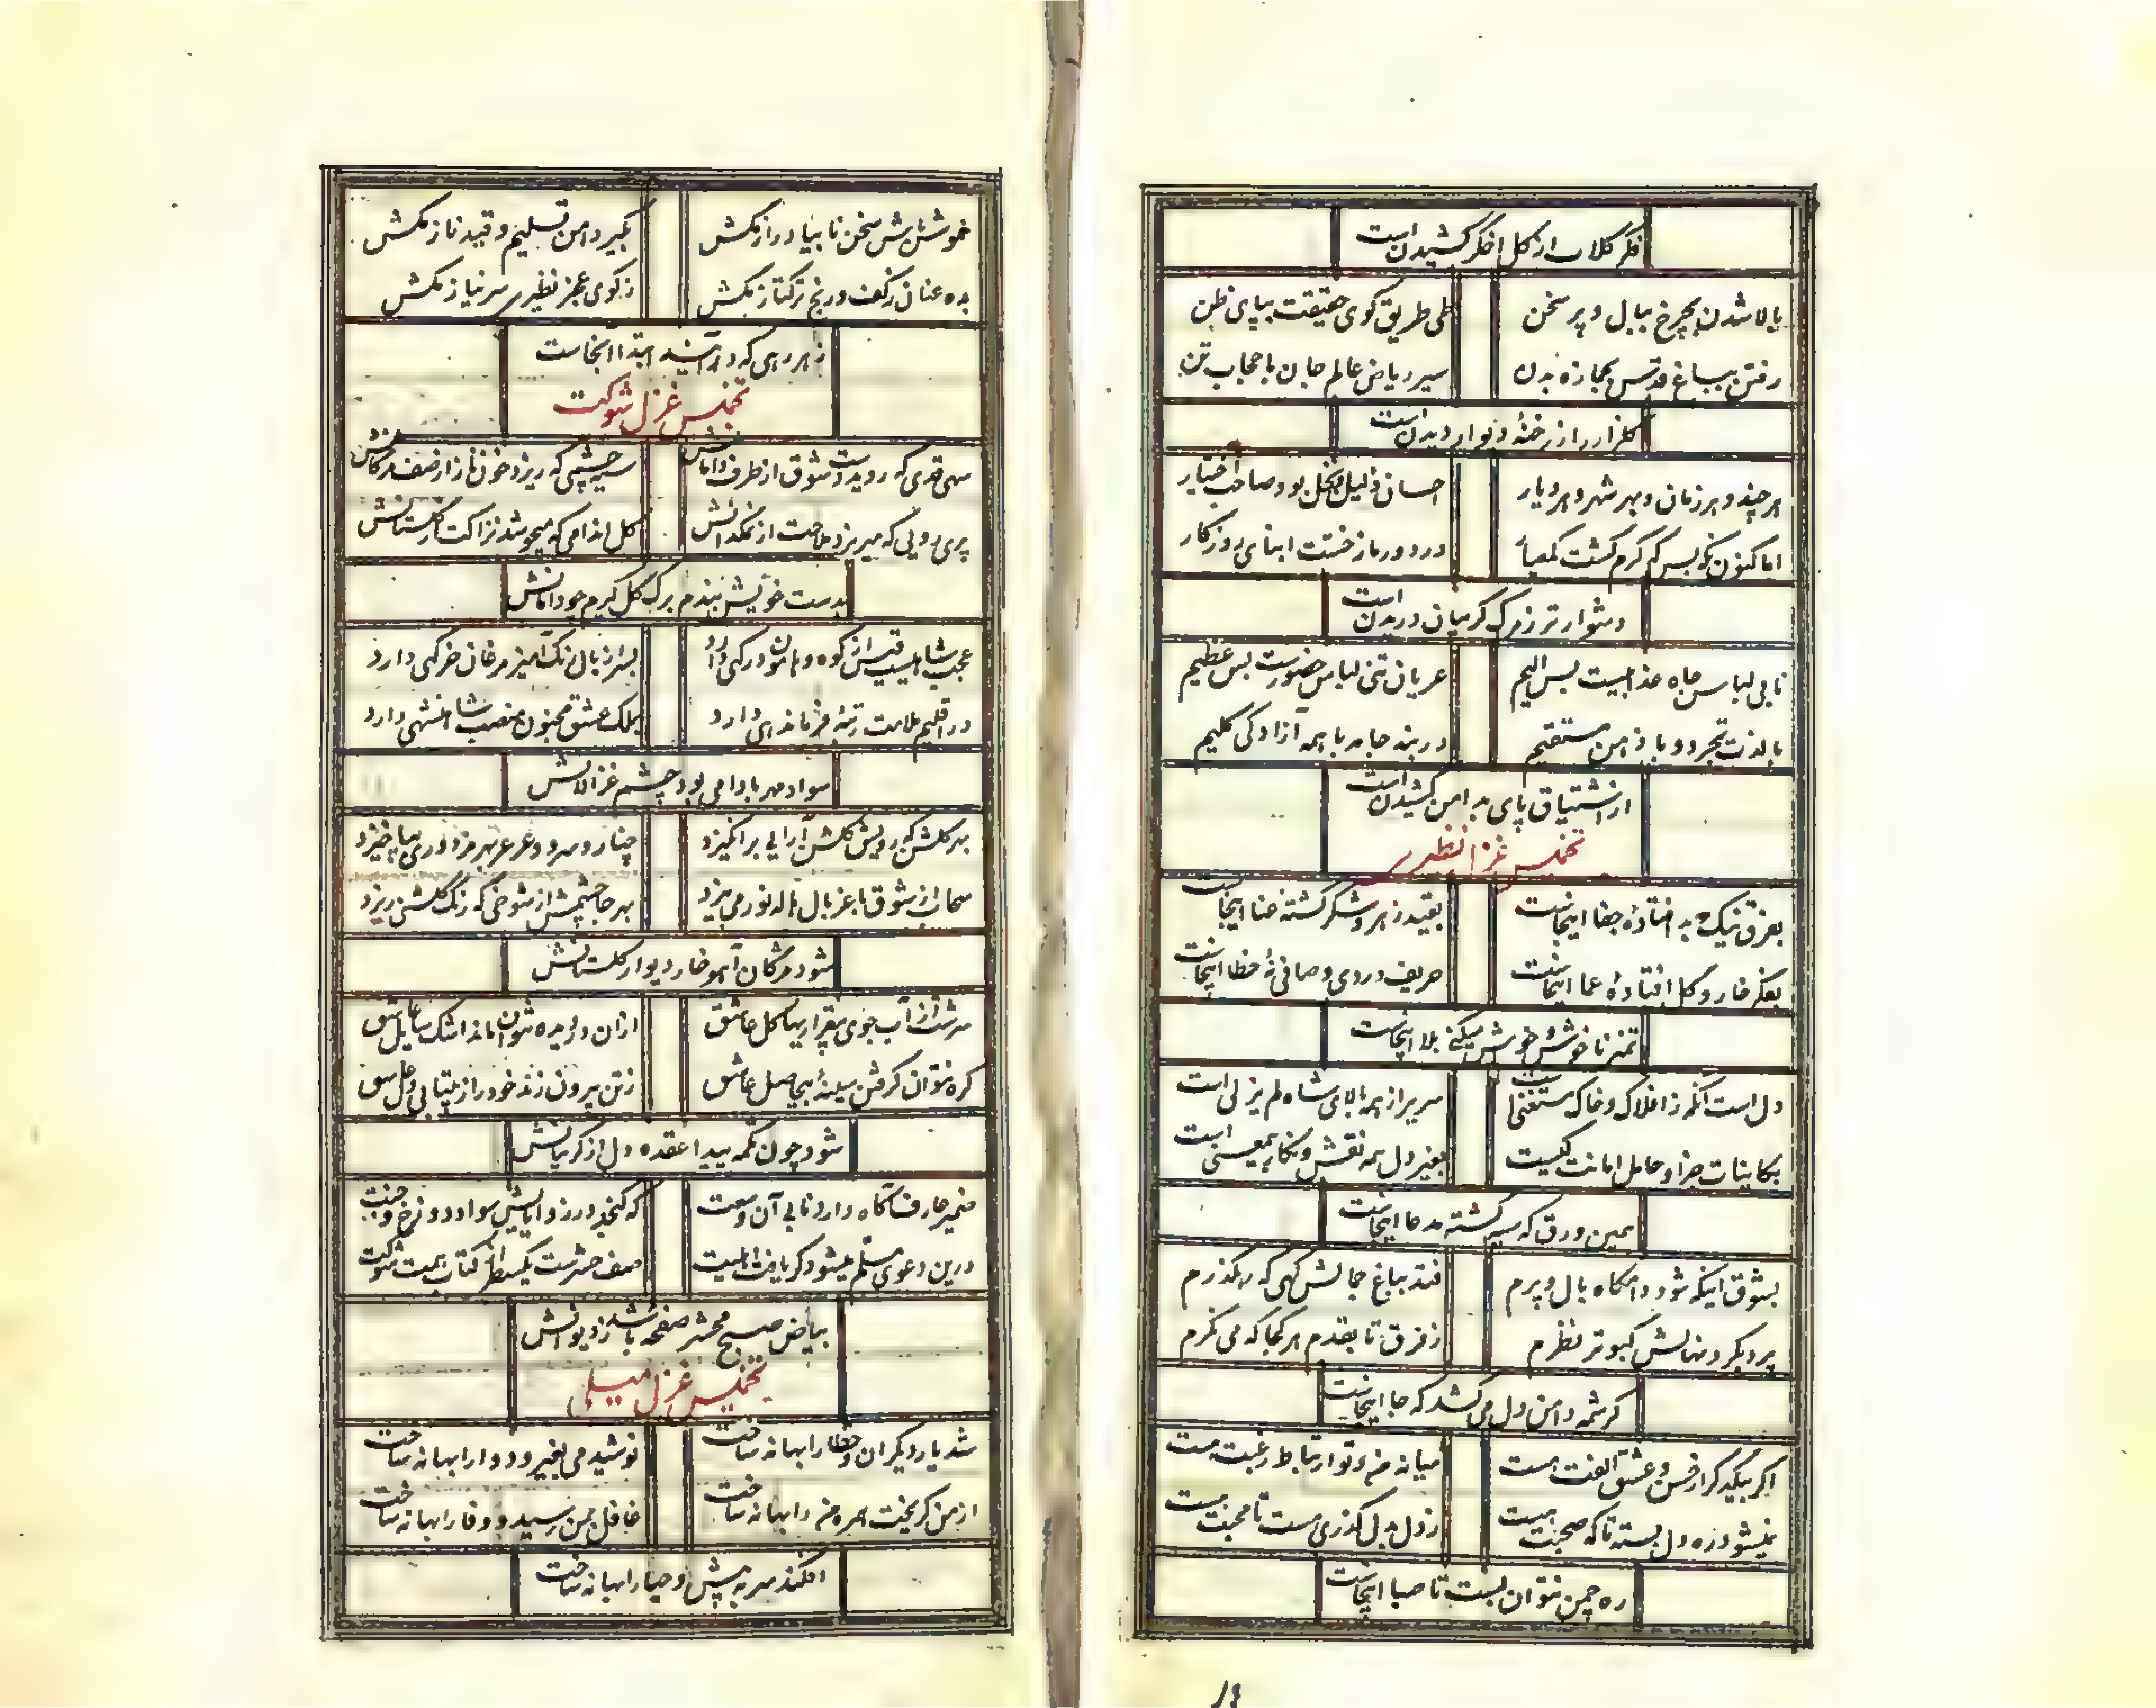 فکر گلاب از گل اخگر کشیدن است
بالا شدن بچرخ ببال و پر سخن
طی طریق کوی حقیقت بپای ظن
رفتن بباغ قدس بجمازه بدن
سیر ریاض عالم جان با حجاب تن
گلزار را ز رخنهٔ دیوار دیدن است
هر چند در هر زمان و بهر شهر و هر دیار
احسان ذلیل بخل بود صاحب اختیار
اما کنون که بسکه کرم گشت کمعیار
در دور ما ز خست ابنای روزگار
دشوارتر ز مرگ گریبان دریدن است
تا بی لباس جاه عذابیست بس الیم
عریان تنی لباس حضوریست بس عظیم
با لذت تجرد و با ذامن مستقیم
در بند جامه با همه آزادگی کلیم
از اشتیاق پای بدامن کشیدن است
تخمیس غزل نظیری
بفرق نیک و بد افتادهٔ جفا اینجاست
بقید زهر و شکر گشته عنا اینجاست
بفکر خار و گل افتادهٔ عما اینجاست
حریف دردی و صافی نهٔ خطا اینجاست
تمیز ناخوش و خوش میکنی بلا اینجاست
دل است آنکه ز افلاک و خاک مستغنیست
سریر از همه بالای شاه لم یزلی است
بکاینات جز او حامل امانت کیست
بغیر دل همه نقش و نگار بیمعنی است
همین ورق که سیه گشته مدعا اینجاست
بشوق اینکه شود دامگاه بال و پرم
فتد بباغ جمالش گهی که رهگذرم
پرد بگرد نهالش کبوتر نظرم
ز فرق تا بقدم هر کجا که می نگرم
کرشمه دامن دل می کشد که جا اینجاست
اگر بیکدیگر از حسن و عشق الفت هست
میانه من و تو ارتباط رغبت هست
نمیشود ره دل بسته تا که صحبت هست
ز دل بدل گذری هست تا محبت هست
ره چمن نتوان بست تا صبا اینجاست
خموش باش سخن تا بیا دراز مکش
بگیر دامن تسلیم و قید ناز مکش
بده عنان ز کف و رنج ترکتاز مکش
ز کوی عجز نظیری سر نیاز مکش
ز هر رهی که درآیند ابتدا اینجاست
تخمیس غزل شوکت
سهی قدی که روید دست شوق از طرف دامانش
سیه چشمی که ریزد خون ناز از صف مژگانش
پری رویی که میریزد ملاحت از نمکدانش
گل اندامی که میجوشد نزاکت از گلستانش
بدست خویش بندم برگ گل گیرم چو دامانش
عجب شاهیست قیس از کوه و هامون درگهی دارد
بسر از بال رنگ آمیز مرغان خرگهی دارد
در اقلیم ملامت رتبهٔ فرماندهی دارد
بملک عشق مجنون منصب شاهنشهی دارد
سواد مهر بادامی بود چشم غزالانش
بهر گلشن که رویش گلشن آرایی برانگیزد
چنار و سرو و عرعر بهر مزدوری بپا خیزد
سحاب از شوق با غربال هاله نور می بیزد
بهر جا چشمش از شوخی که رنگ گلشن ریزد
شود مژگان آهو خار دیوار گلستانش
سرشت از آب جوی بیقراریها گل عاشق
گره نتوان گرفتن سینهٔ بیحاصل عاشق
ز تن بیرون زند خود را ز بیتابی دل عاشق
شود چون تکمه پیدا عقده دل از گریبانش
ضمیر عارف آگاه دارد تا بی آن وسعت
که گنجد در زوایایش سواد دوزخ و جنت
درین دعوی مسلم میشود گر یافت اهلیت
صف حشرست یکسطر کتاب همت شوکت
بیاض صبح محشر صفحه باشد ز دیوانش
تخمیس غزل میلی
شد یار دیگران و خطا را بهانه ساخت
نوشید می بغیر و دوا را بهانه ساخت
از من گریخت همره من را بهانه ساخت
غافل بمن رسید و وفا را بهانه ساخت
افکند سر به پیش و حیا را بهانه ساخت
۱۴